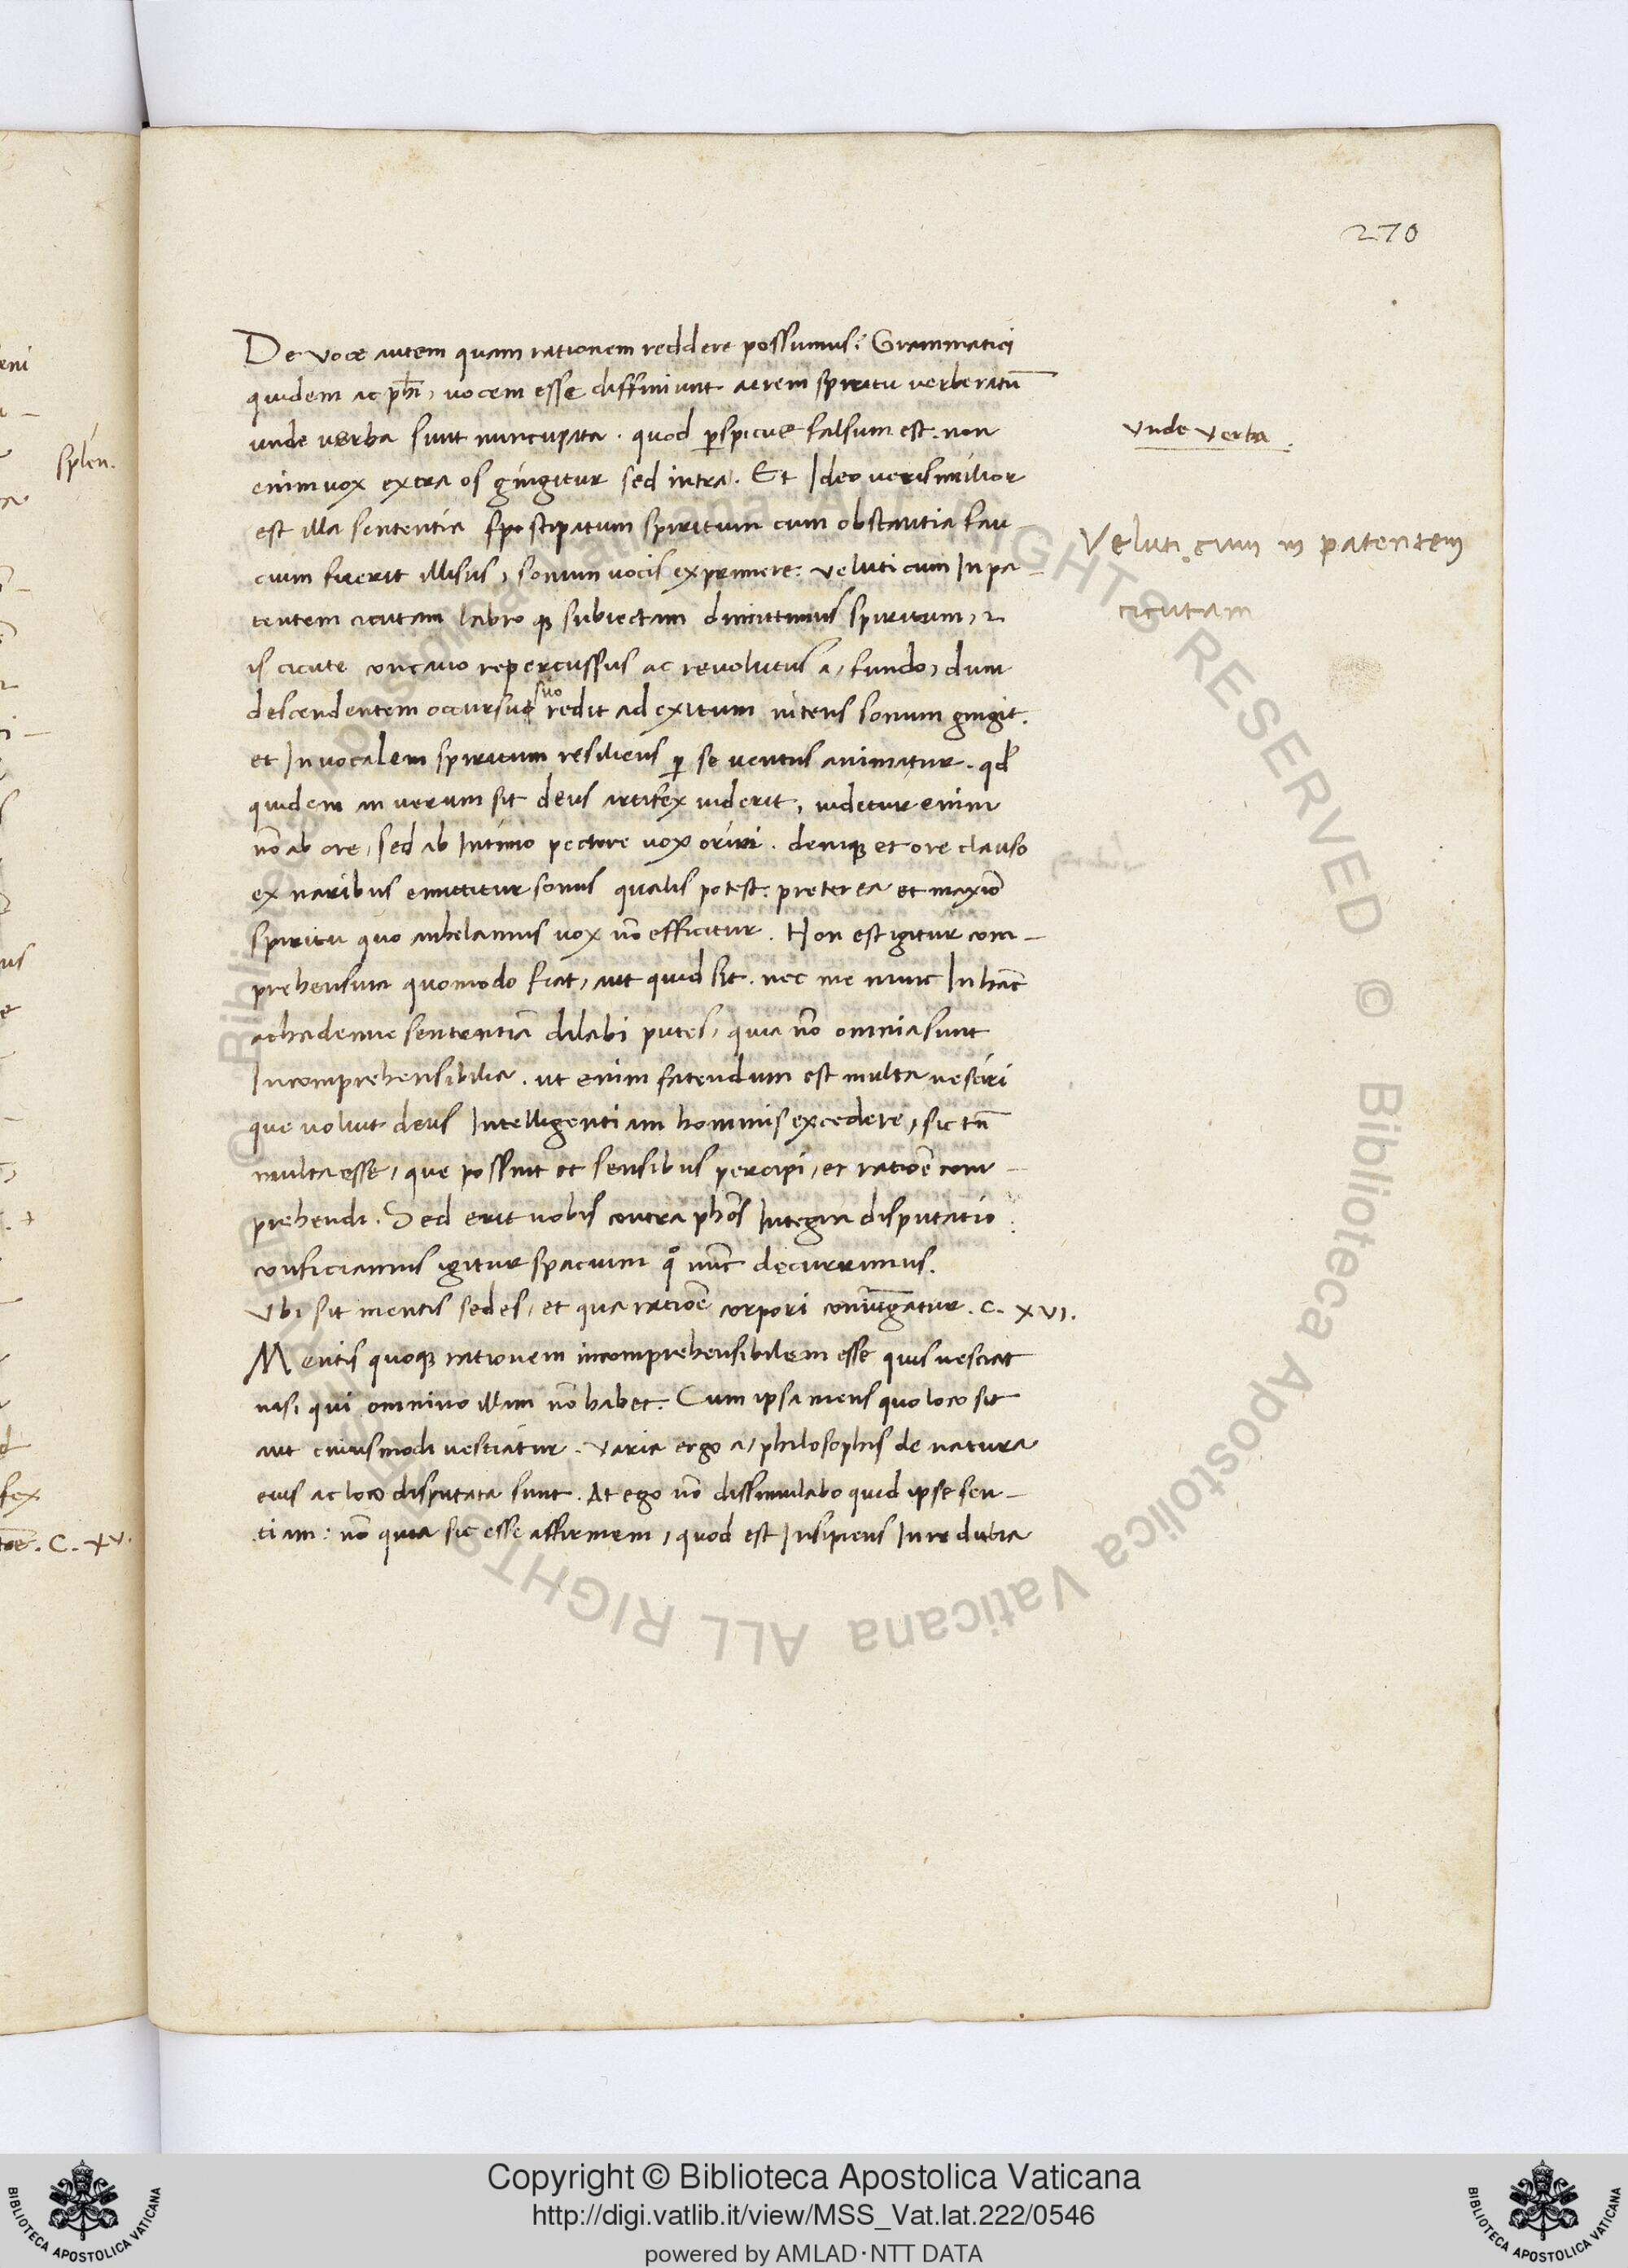 270
De voce autem quam rationem reddere possumus? Grammatici
quidem ac phi, vocem esse diffiniunt aerem spiritu verberatū
unde verba sunt nuncupata. quod perspicue falsum est. non
enim vox extra os gingitur sed intra. Et Ideo verisimilior
est illa sententia stipatum spiritum cum obstantia fau
cium fuerit illisus, sonum vocis exprimere: veluti cum In pa-
tentem cicutam labro qȝ subiectam dimittimus spiritum, 
is cicute concavo repercussus ac revolutus a, fundo, dum
descendentem occursu suo redit ad exitum nitens sonum gingit.
et In vocalem spiritum resiliens per se ventus animatur. qd
quidem an verum sit deus artifex viderit, videtur enim
nō ab ore, sed ab Intimo pectore vox oriri. deniqȝ et ore clauso
ex naribus emittitur sonus qualis potest: preterea et maxīo
spiritu quo anhelamus vox nō efficitur. Non est igitur com-
prehensum quomodo fiat, aut quid sit. nec me nunc In hāc
achademie sententiā dilabi putes, quia nō omnia sunt
Incomprehensibilia. ut enim fatendum est multa nesciri
que voluit deus Intelligentiam hominis excedere, sic tn̄
multa esse, que possint et sensibus percipi, et ratiōe com-
prehendi. Sed erit nobis contra phōs Integra disputatio:
conficiamus igitur spacium qo nūc decurrimus.
Ubi sit mentis sedes, et qua ratiōe corpori coniūgatur. C. XVI.
Mentis quoqȝ rationem incomprehensibilem esse quis nesciat
nisi qui omnino illam nō habet. Cum ipsa mens quo loco sit
aut cuiusmodi nesciatur. Varia ergo a, philosophis de natura
eius ac loco disputata sunt. At ego nō dissimulabo quid ipse sen-
tiam: nō quia sic esse affirmem, quod est Insipiens In re dubia
unde verba.
Veluti cum in patentem
cicutam
splen.
C. XV.
© Biblioteca Apostolica Vaticana ALL RIGHTS RESERVED © Biblioteca Apostolica Vaticana ALL RIGHTS RESERVED
Copyright © Biblioteca Apostolica Vaticana
http://digi.vatlib.it/view/MSS_Vat.lat.222/0546
powered by AMLAD·NTT DATA
BIBLIOTECA APOSTOLICA VATICANA
BIBLIOTECA APOSTOLICA VATICANA